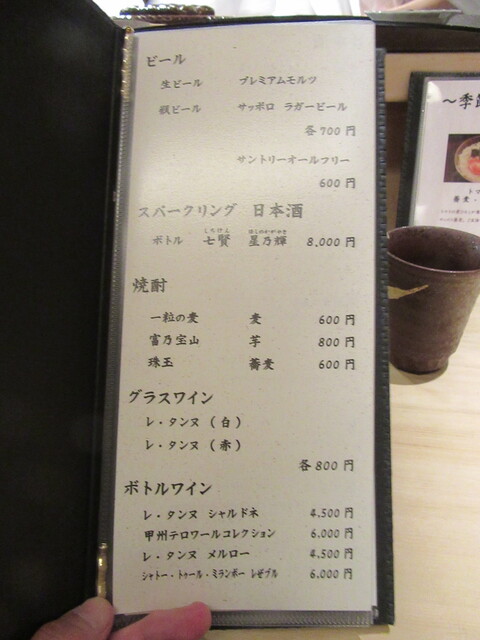 ビール
生ビール プレミアムモルツ
瓶ビール サッポロ ラガービール
各700円
サントリーオールフリー
600円
スパークリング 日本酒
ボトル 七賢 星乃輝 8,000円
しちけん ほしのかがやき
焼酎
一粒の麦 麦 600円
富乃宝山 芋 800円
珠玉 蕎麦 600円
グラスワイン
レ・タンヌ(白)
レ・タンヌ(赤)
各800円
ボトルワイン
レ・タンヌ シャルドネ 4,500円
甲州テロワールコレクション 6,000円
レ・タンヌ メルロー 4,500円
シャトー・トゥール・ミランボー レゼブル 6,000円
～季節
トマ
蕎麦・